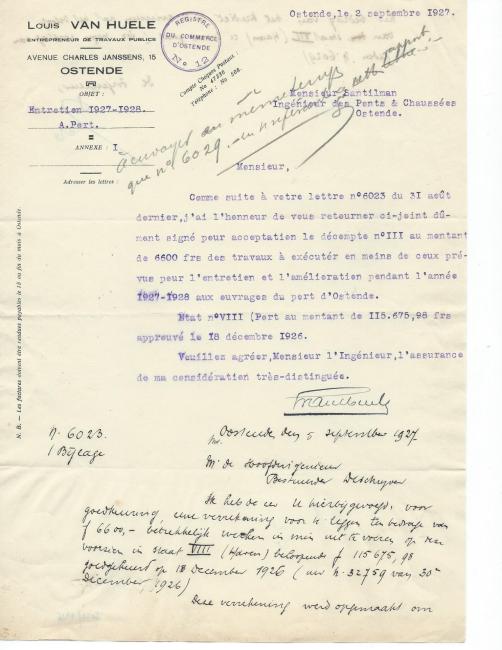 Louis VAN HUELE
ENTREPRENEUR DE TRAVAUX PUBLICS
AVENUE CHARLES JANSSENS, 15
OSTENDE
REGISTRE
DU COMMERCE
D'OSTENDE
No 12
Compte Chèques Postaux :
Téléphone : No 508.
Ostende, le 2 septembre 1927.
OBJET :
Entretien 1927-1928.
A. Port.
ANNEXE : I
Adresser les lettres :
Monsieur Santilman
Ingénieur des Ponts & Chaussées
Ostende.
à envoyer en même temps
que n° 6029
Monsieur,
Comme suite à votre lettre n°6023 du 3I août
dernier, j'ai l'honneur de vous retourner ci-joint dû-
ment signé pour acceptation le décompte n°III au montant
de 6600 frs des travaux à exécutér en moins de ceux pré-
vus pour l'entretien et l'amélioration pendant l'année
1927-1928 aux ouvrages du port d'Ostende.
Etat n°VIII (Port au montant de II5.675,98 frs
approuvé le I8 décembre 1926.
Veuillez agréer, Monsieur l'Ingénieur, l'assurance
de ma considération très-distinguée.
N. B. — Les factures doivent être rendues payables le 15 ou fin du mois à Ostende.
N. 6023
1 Bijlage
Oostende, den 5 september 1927
Mr de Hoofdingenieur
Bestuurder Deschyver
Ik heb de eer U hierbijgevoegd voor
goedkeuring eene verrekening voor te leggen ten bedrage van
f 6600,- betrekkelijk werken in min uit te voeren op deze
voorzien in staat VIII (Haven) beloopende f 115675,98
goedgekeurd op 18 December 1926 (uw N. 32759 van 30n
December 1926)
Deze verrekening werd opgemaakt om